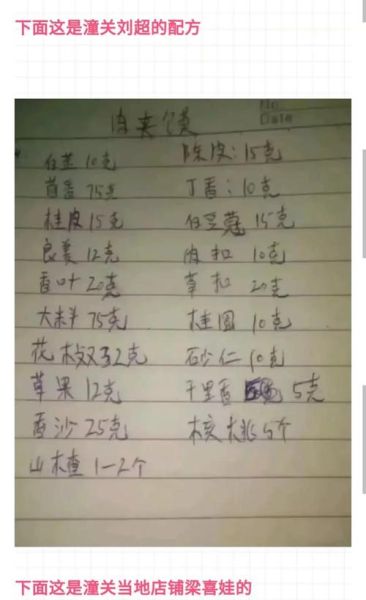 下面这是潼关刘超的配方
No.
Date
肉夹馍
白芷10克 陈皮:15克
茴香75克 丁香:10克
桂皮15克 白豆蔻15克
良姜12克 肉扣10克
香叶20克 草扣20克
大料75克 桂圆10克
花椒32克 砂仁10克
草果12克 千里香 5克
香沙25克 核桃5个
山楂1-2个
下面这是潼关当地店铺梁喜娃的